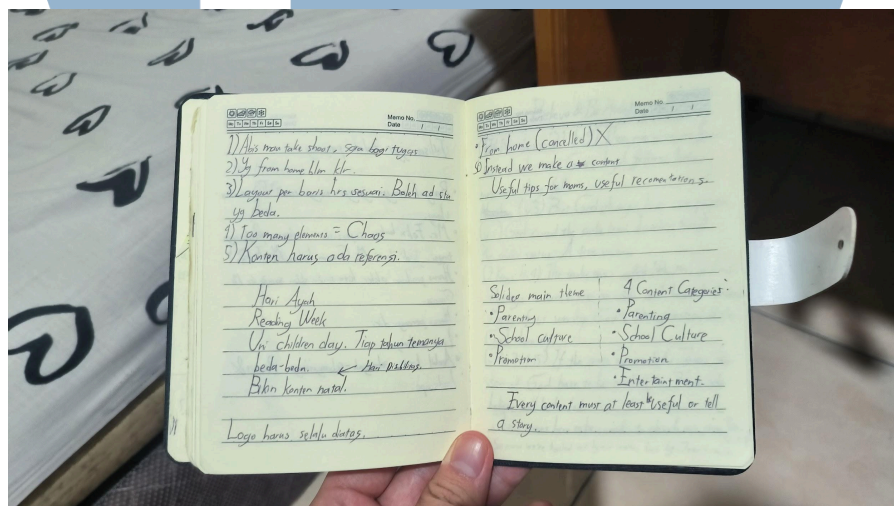 Memo No.
Date / /
Mo Tu We Th Fr Sa Su
1) Abis mao take shoot, saya bagi tugas
2) Yg from home blm klr.
3) Layout per baris hrs sesuai. Boleh ad
yg beda.
4) Too many elements = Chaos
5) Konten harus ada referensi.
Hari Ayah
Reading Week
Un children day. Tiap tahun temanya
beda-beda.
Bikin konten natal.
Logo harus selalu diatas.
Memo No.
Date / /
Mo Tu We Th Fr Sa Su
• From home (cancelled) X
Instead we make a content
Useful tips for moms, useful recomentations.
Solideo main theme
• Parenting
• School culture
• Promotion
4 Content Categories:
• Parenting
• School Culture
• Promotion
• Entertaintment.
Every content must at least be useful or tell
a story.